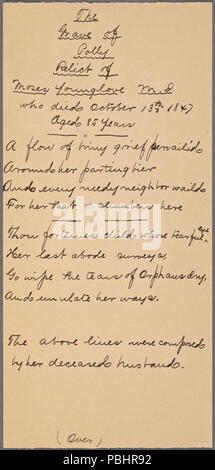 The
Grave of
Polly
Relict of
Moses Younglove M.D
who died October 13th 1847
Aged 85 years
A flow of briny grief pervailed
Around her parting bier
And every needy neighbor wailed
For her that slumbers here
Thou fortunes child whose tearful eye
Her last abode surveys,
Go wipe the tears of Orphans dry,
And emulate her ways.
The above lines were composed
by her deceased husband.
(Over)
alamy
Image ID: PBHR92
www.alamy.com